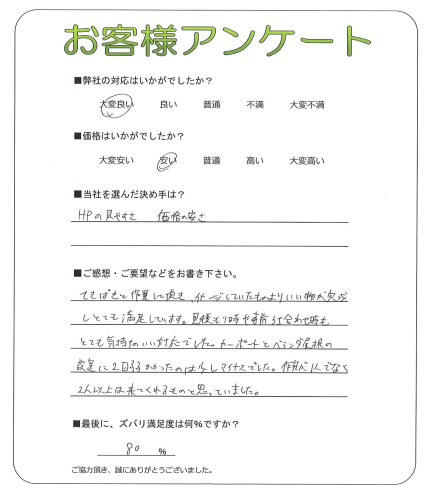 お客様アンケート
■弊社の対応はいかがでしたか？
大変良い 良い 普通 不満 大変不満
■価格はいかがでしたか？
大変安い 安い 普通 高い 大変高い
■当社を選んだ決め手は？
HPの見やすさ 価格の安さ
■ご感想・ご要望などをお書き下さい。
てきぱきと作業して頂き、イメージしていたものよりいい物が完成
しとても満足しています。見積もり時や事前打合わせ時も
とても気持ちのいい対応でした。カーポートとベランダ屋根の
設定に2日かかったのは少しマイナスでした。作業が1人でなく
2人以上は来てくれるものと思っていました。
■最後に、ズバリ満足度は何%ですか？
80 %
ご協力頂き、誠にありがとうございました。